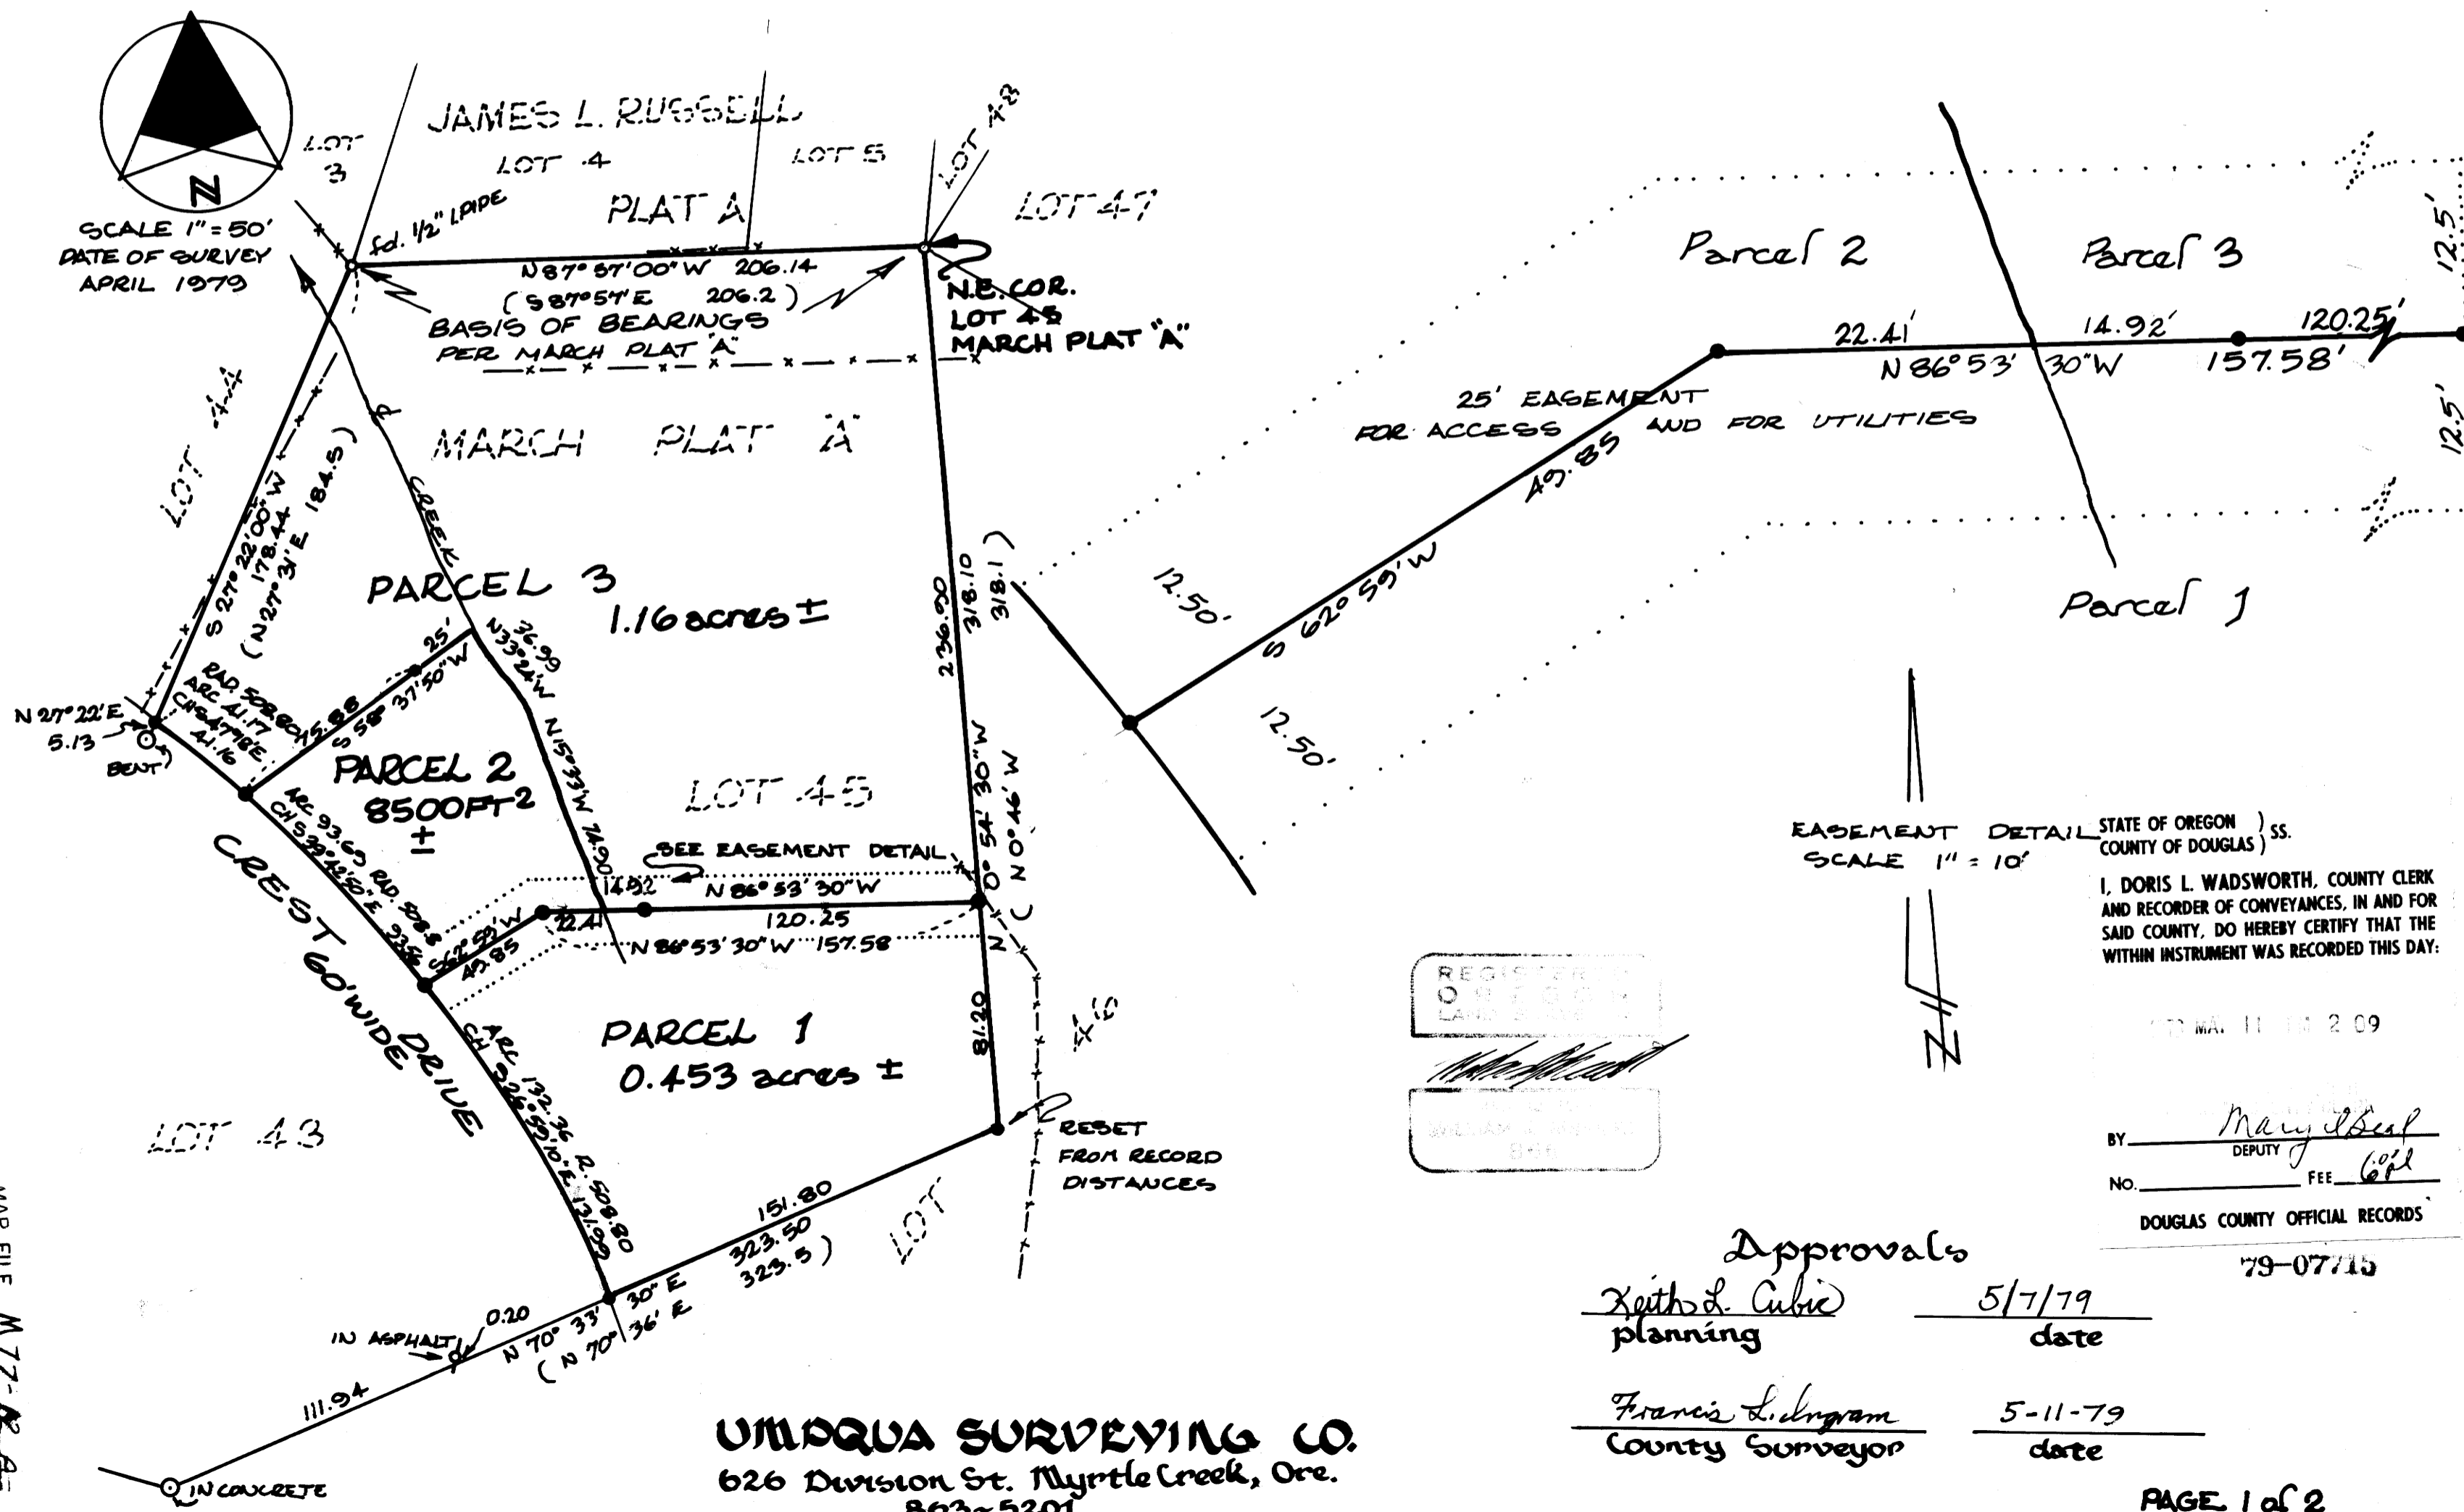 N
SCALE 1" = 50'
DATE OF SURVEY
APRIL 1979
JAMES L. RUSSELL
LOT 3
LOT 4
LOT 5
LOT 48
PLAT A
LOT 47
fd. 1/2" I.PIPE
N 87° 57' 00" W 206.14
( S 87° 57' E 206.2 )
BASIS OF BEARINGS
PER MARCH PLAT "A"
N.E. COR.
LOT 45
MARCH PLAT "A"
LOT 44
MARCH PLAT "A"
S 27° 22' 00" W
178.44
( N 27° 31' E 184.5 )
CREEK
PARCEL 3
1.16 acres ±
236.90
318.10
318.1 )
N 0° 54' 30" W
( N 0° 46' W
N 27° 22' E
5.13
BENT
RAD. 508.80
ARC 41.17
41.16
25'
S 58° 37' 50" W
36.99
N 33° 24' W
N 15° 33' W 74.90
PARCEL 2
8500 FT²
±
LOT 45
SEE EASEMENT DETAIL
14.92
N 86° 53' 30" W
22.41
120.25
N 86° 53' 30" W 157.58
S 62° 59' W
49.85
ARC 93.69 RAD. 508.8
CH S 39° 42' 50" E 93.56
CREST DRIVE
60' WIDE
81.20
PARCEL 1
0.453 acres ±
ARC 132.36 R. 508.80
CH S 26° 59' 10" E 131.99
LOT 43
LOT 46
RESET
FROM RECORD
DISTANCES
151.80
323.50
323.5 )
N 70° 33' 30" E
( N 70° 36' E
0.20
IN ASPHALT
111.94
IN CONCRETE
UMPQUA SURVEYING CO.
626 Division St. Myrtle Creek, Ore.
863-5201
Parcel 2
Parcel 3
12.5'
22.41'
14.92'
120.25'
N 86° 53' 30" W
157.58'
12.5'
25' EASEMENT
FOR ACCESS AND FOR UTILITIES
49.85
S 62° 59' W
12.50'
12.50'
Parcel 1
EASEMENT DETAIL
SCALE 1" = 10'
N
STATE OF OREGON )
COUNTY OF DOUGLAS ) SS.
I, DORIS L. WADSWORTH, COUNTY CLERK
AND RECORDER OF CONVEYANCES, IN AND FOR
SAID COUNTY, DO HEREBY CERTIFY THAT THE
WITHIN INSTRUMENT WAS RECORDED THIS DAY:
11 2 09
BY Mary
DEPUTY
NO. FEE
DOUGLAS COUNTY OFFICIAL RECORDS
79-07715
REGISTERED
OREGON
LAND
Approvals
Keith L. Cubic 5/7/79
planning date
Francis L. Ingram 5-11-79
County Surveyor date
PAGE 1 of 2
MAP FILE M77-